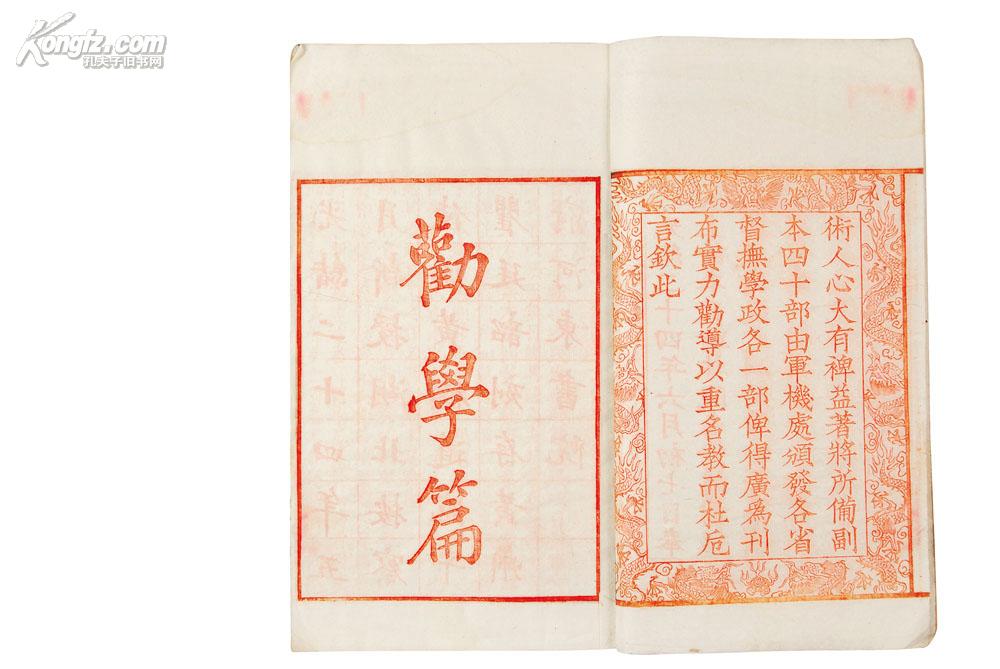 Kongfz.com
孔夫子旧书网
術人心大有裨益著將所備副
本四十部由軍機處頒發各省
督撫學政各一部俾得廣為刊
布實力勸導以重名教而杜卮
言欽此
勸學篇